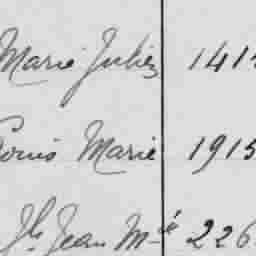 Marie Julien 141
Louis Marie 1915
Jh Jean Mie 226